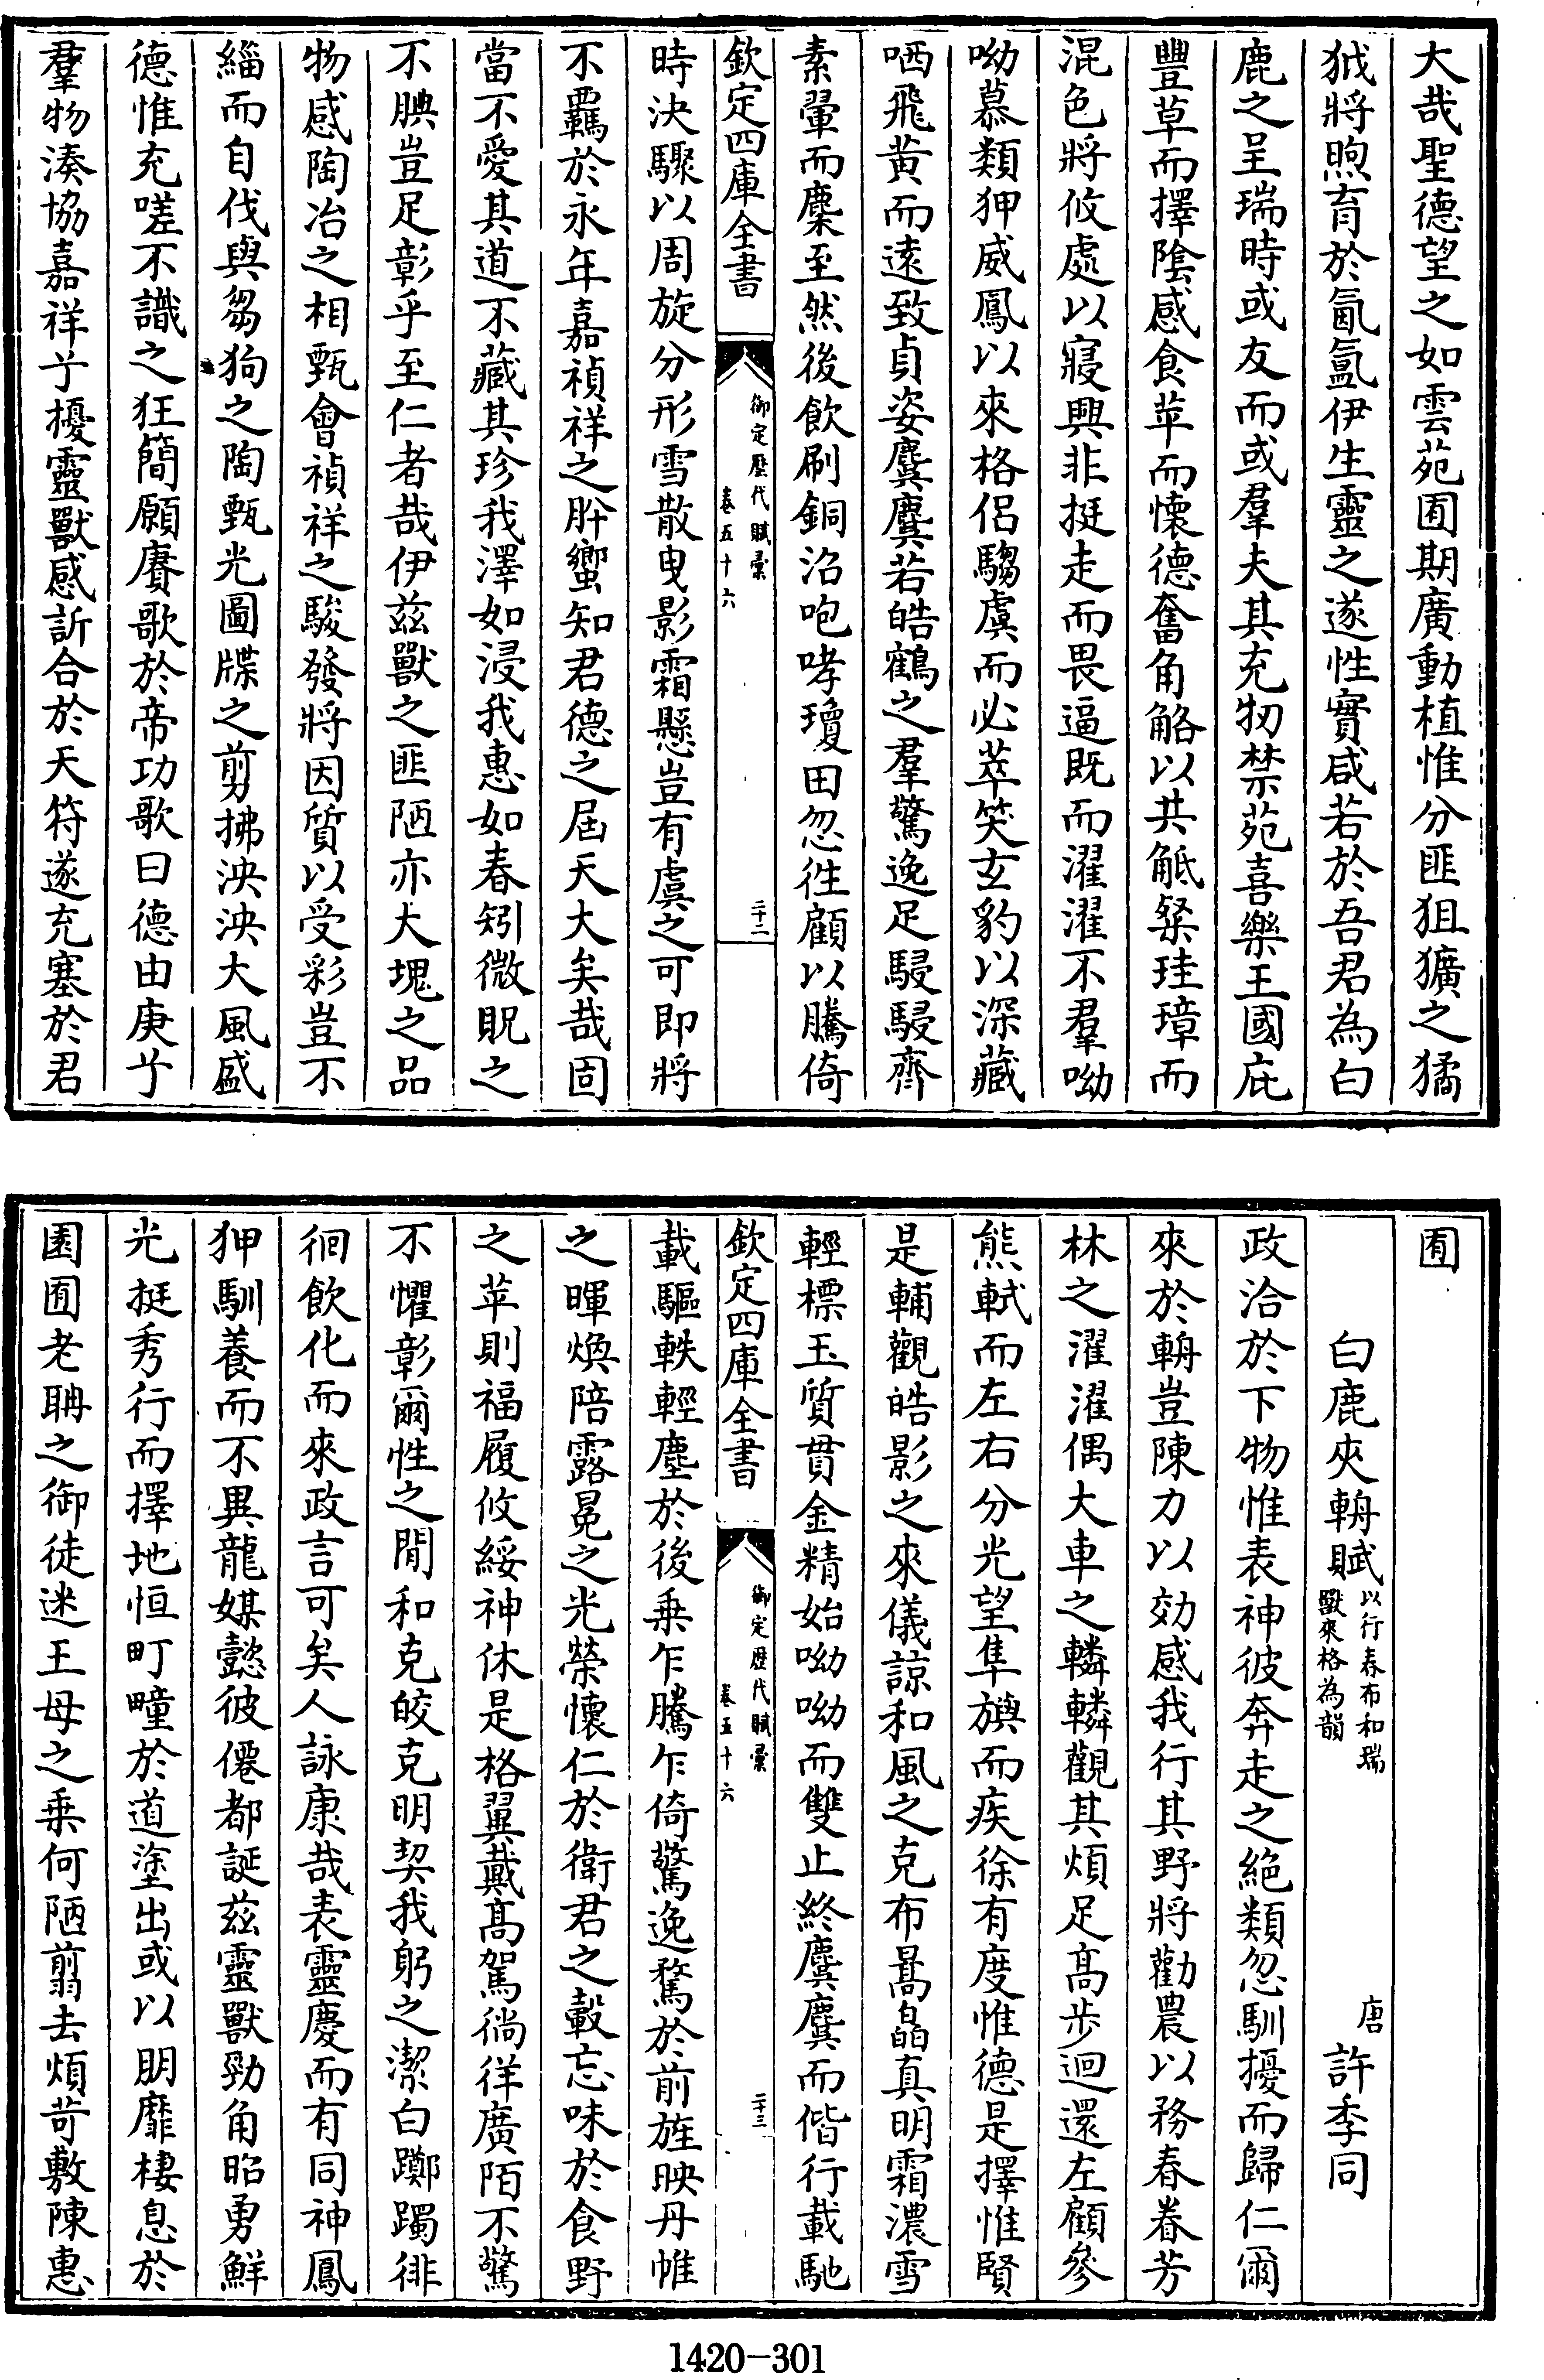 大哉聖德望之如雲苑囿期廣動植惟分匪狙獷之獝
狘將煦育於氤氳伊生靈之遂性實咸若於吾君為白
鹿之呈瑞時或友而或羣夫其充牣禁苑喜樂王國庇
豐草而擇陰感食苹而懷德奮角觡以共觝粲珪璋而
混色將攸處以寢興非挺走而畏逼既而濯濯不羣呦
呦慕類狎威鳳以來格侶騶虞而必萃笑玄豹以深藏
哂飛黃而遠致貞姿麌麌若皓鶴之羣驚逸足駸駸齊
素翬而麇至然後飲刷銅沼咆哮瓊田忽徃顧以騰倚
欽定四庫全書
御定歷代賦彙
卷五十六
二十二
時決驟以周旋分形雪散曳影霜懸豈有虞之可即將
不覊於永年嘉禎祥之肸蠁知君德之屆天大矣哉固
當不愛其道不藏其珍我澤如浸我惠如春矧微貺之
不腆豈足彰乎至仁者哉伊兹獸之匪陋亦大塊之品
物感陶冶之相甄會禎祥之駿發將因質以受彩豈不
緇而自伐與芻狗之陶甄光圖牒之剪拂泱泱大風盛
德惟充嗟不識之狂簡願賡歌於帝功歌曰德由庚兮
羣物湊協嘉祥兮擾靈獸感訢合於天符遂充塞於君
囿
白鹿夾輈賦
以行春布和瑞
獸來格為韻
唐
許季同
政洽於下物惟表神彼奔走之絶類忽馴擾而歸仁爾
來於輈豈陳力以効感我行其野將勸農以務春眷芳
林之濯濯偶大車之轔轔觀其煩足高步迴還左顧參
熊軾而左右分光望隼旟而疾徐有度惟德是擇惟賢
是輔觀皓影之來儀諒和風之克布暠皛真明霜濃雪
輕標玉質貫金精始呦呦而雙止終麌麌而偕行載馳
欽定四庫全書
御定歷代賦彙
卷五十六
二十三
載驅軼輕塵於後乗乍騰乍倚驚逸騖於前旌映丹帷
之暉煥陪露冕之光榮懷仁於衛君之轂忘味於食野
之苹則福履攸綏神休是格翼戴高駕徜徉廣陌不驚
不懼彰爾性之閒和克皎克明契我躬之潔白躑躅徘
徊飲化而來政言可矣人詠康哉表靈慶而有同神鳳
狎馴養而不異龍媒懿彼僊都誕兹靈獸勁角昭勇鮮
光挺秀行而擇地恒町疃於道塗出或以朋靡棲息於
園囿老聃之御徒迷王母之乗何陋翦去煩苛敷陳惠
1420-301